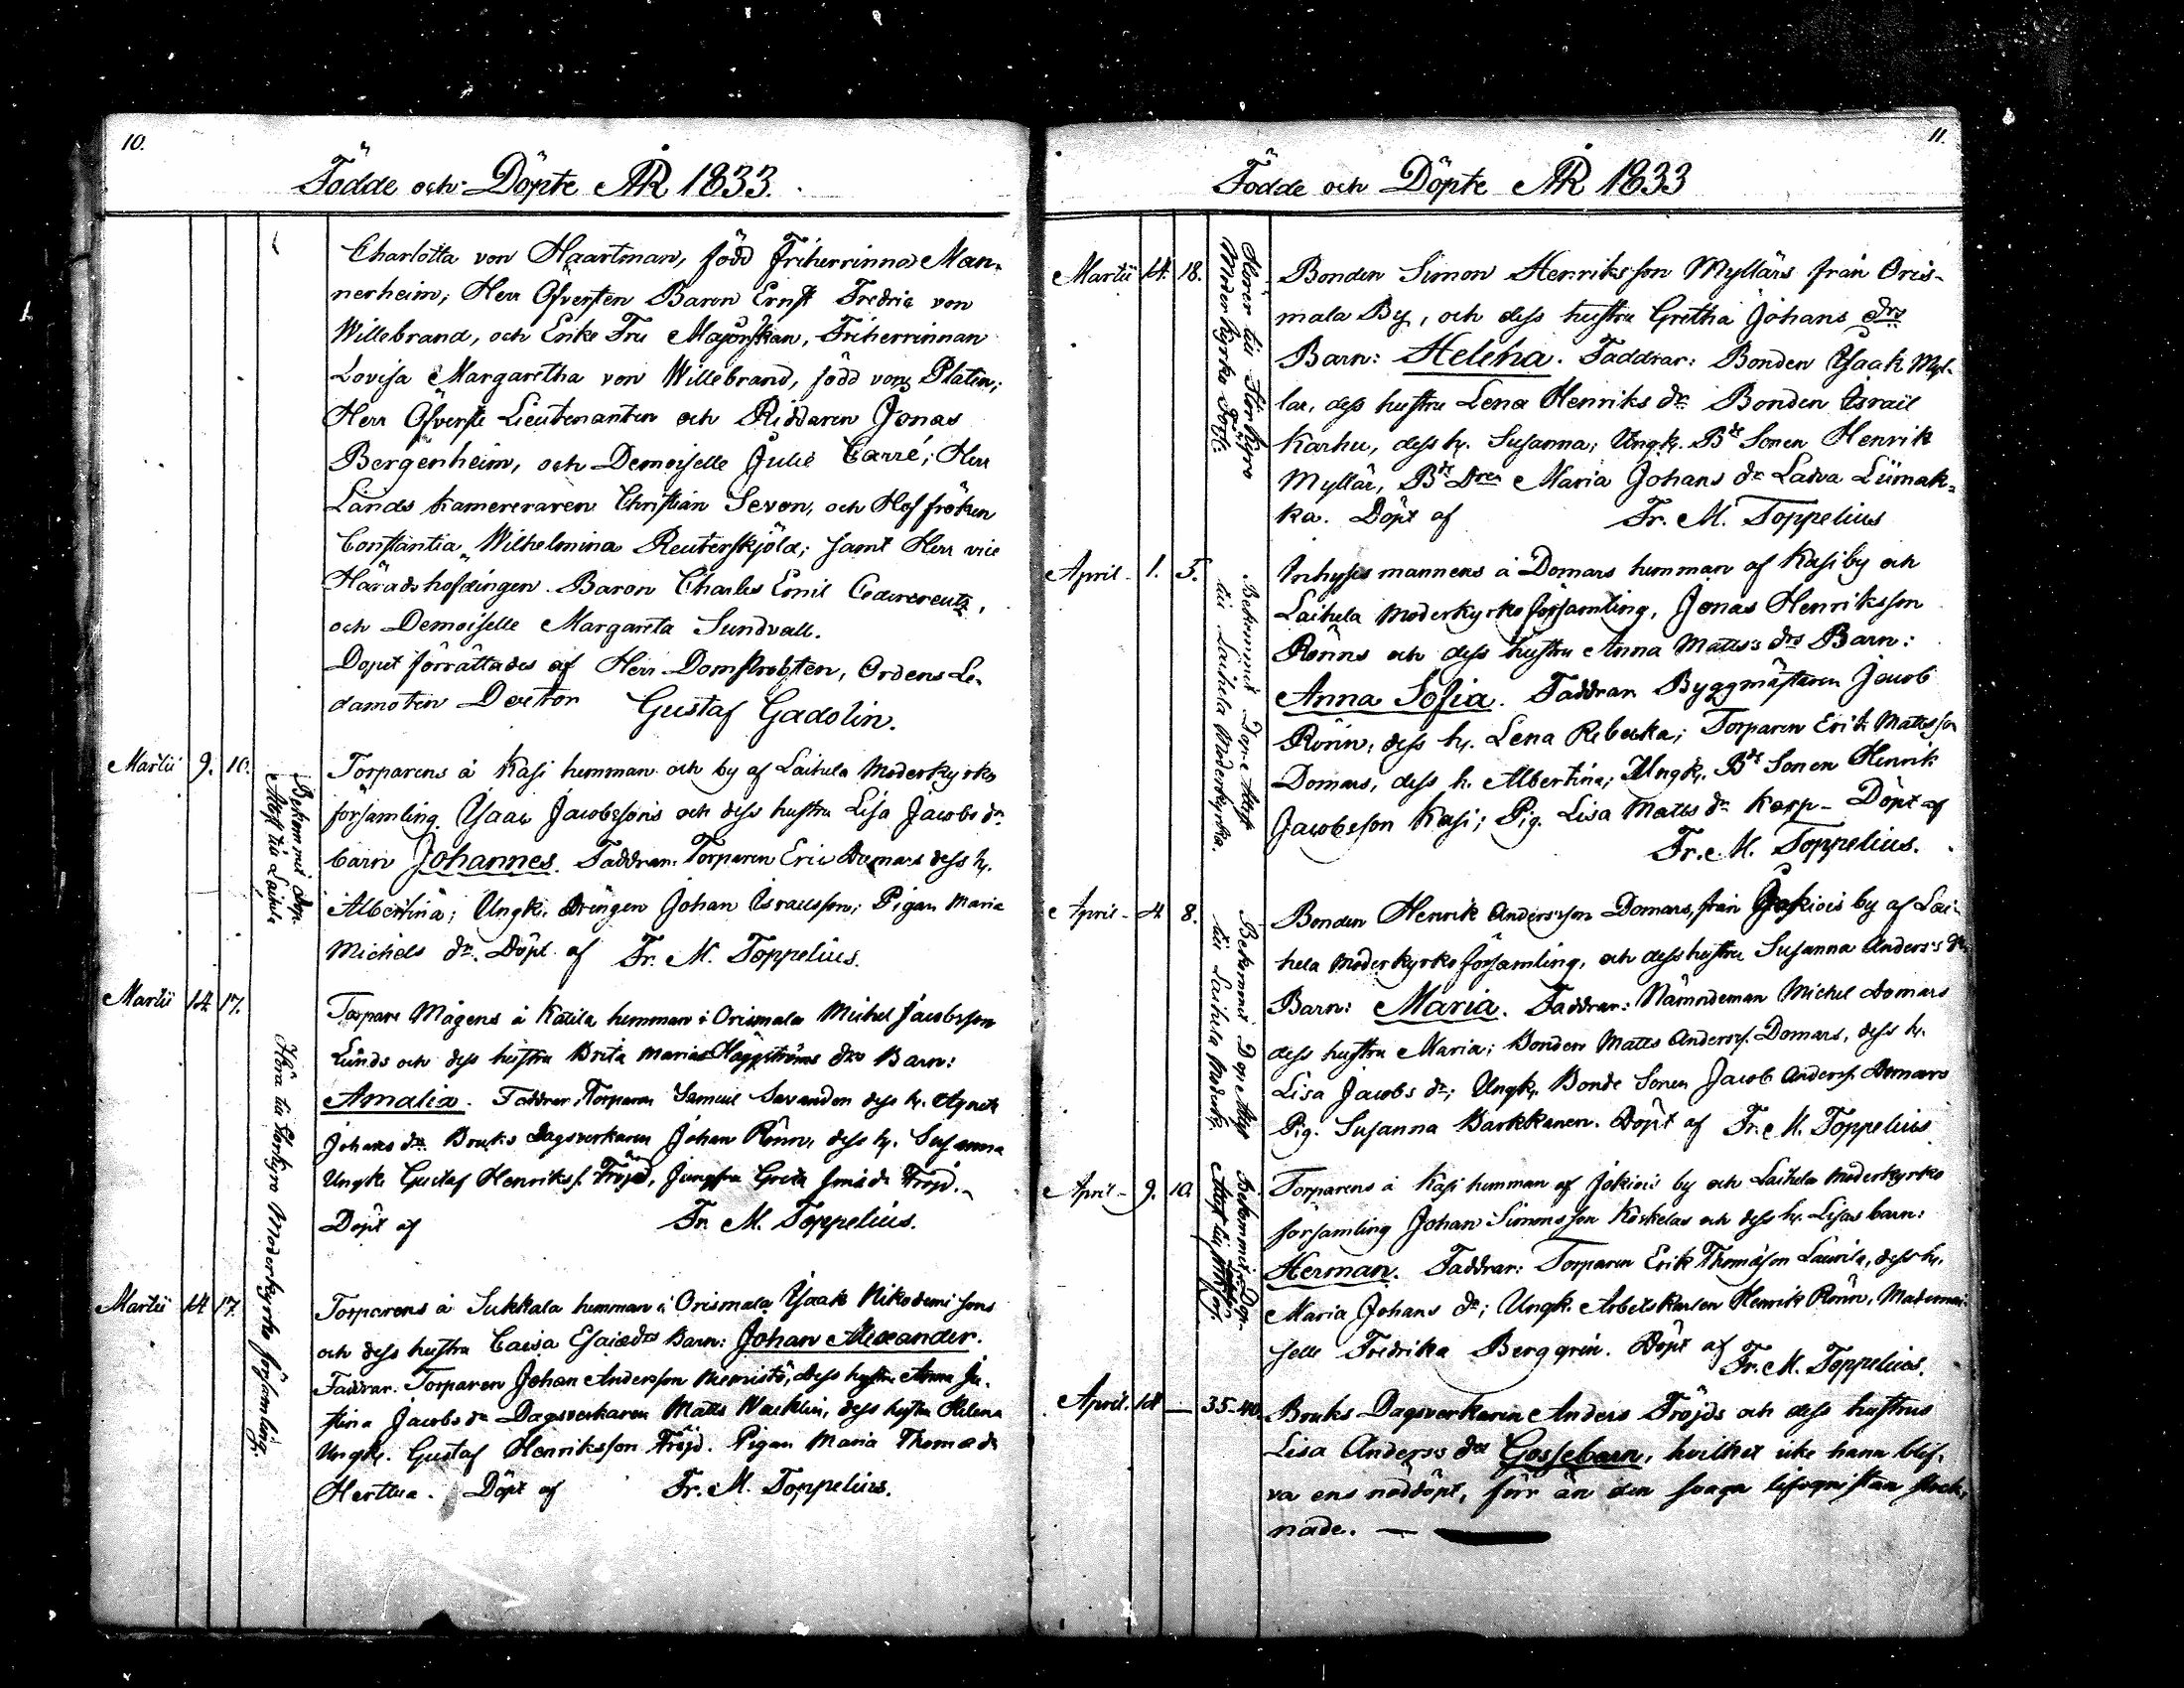 10.
Födde och Döpte ÅR 1833.
Charlotta von Haartman, född Friherrinna Man-
nerheim; Herr Öfversten Baron Ernst Fredric von
Willebrand, och Enke Fru Majorskan, Friherrinnan
Lovisa Margaretha von Willebrand, född von Platen;
Herr Öfverste Lieutenanten och Riddaren Jonas
Bergenheim, och Demoiselle Julie Carré; Herr
Lands kamereraren Christian Seven, och Hof fröken
Constantia Wilhelmina Reuterskjöld; samt Herr vice
Häradshöfdingen Baron Charles Emil Cedercreutz,
och Demoiselle Margareta Sundvall.
Dopet förrättades af Herr Domprobsten, Ordens Le-
damoten Doctor Gustaf Gadolin.
Martii 9. 10.
Bekommit Dop-
Attest till Laihela
Torparens å Kasi hemman och by af Laihela Moderkyrko
församling Isaac Jacobssons och dess hustru Lisa Jacobs dr
barn Johannes. Faddrar: Torparen Eric Domars dess h.
Albertina; Ungk. Drängen Johan Israelsson; Pigan Maria
Michels dr. Döpt af Fr. M. Toppelius.
Martii 14 17.
Höra till Storkyro Moderkyrko församling.
Torpare Mågens å Katila hemman i Orismala Michel Jacobsson
Lunds och dess hustru Brita Maria Häggströms drs Barn:
Amalia. Faddrar: Torparen Samuel Savandon dess h. Agneta
Johans dr. Bruks Dagsverkaren Johan Rönn, dess h. Susanna
Ungk. Gustaf Henrikss. Fröjd, Jungfru Greta Fröjd.
Döpt af Fr. M. Toppelius.
Martii 14 17.
Torparens å Sukkala hemman i Orismala Isaak Nikodemi sons
och dess hustru Caisa Esaiædrs Barn: Johan Alexander.
Faddrar. Torparen Johan Andersson Niemistö, dess hustru Anna Ju-
stina Jacobs dr Dagsverkaren Matts Wacklin, dess hustru Helena
Ungk. Gustaf Henriksson Fröjd. Pigan Maria Thomæ dr
Herttua. Döpt af Fr. M. Toppelius.
11.
Födde och Döpte ÅR 1833
Martii 14. 18.
Hörer till Storkyro
Moderkyrko Förs:
Bonden Simon Henriksson Myllärs från Oris-
mala By, och dess hustru Gretha Johans drs
Barn: Helena. Faddrar: Bonden Isaak Myl-
lar, dess hustru Lena Henriks dr. Bonden Israël
Karhu, dess h. Susanna; Ungk. Bde Sonen Henrik
Myllär, Bde Dren Maria Johans dr Laiva Liimak-
ka. Döpt af Fr. M. Toppelius
April 1. 5.
Bekommit Dopattest
till Laihela Moderkyrka.
Inhyses mannens å Domars hemman af Kasi by och
Laihela Moderkyrko församling, Jonas Henriksson
Rönns och dess hustru Anna Matts's drs Barn:
Anna Sofia. Faddrar Byggmästaren Jacob
Rönn, dess h. Lena Rebecka; Torparen Erik Mattsson
Domars, dess h. Albertina; Ungk. Bde Sonen Henrik
Jacobsson Kasi; Pig. Lisa Matts dr Karp- Döpt af
Fr. M. Toppelius.
April 4 8.
Bekommit Dop Att
till Laihela Moderk.
Bonden Henrik Andersson Domars, från Jokiois by af Lai-
hela Moderkyrko församling, och dess hustru Susanna Anders's dr
Barn: Maria. Faddrar: Nämndeman Michel Domars
dess hustru Maria; Bonden Matts Anderss. Domars, dess h.
Lisa Jacobs dr; Ungk. Bonde Sonen Jacob Anderss. Domars
Pig. Susanna Barkkanen. Döpt af Fr. M. Toppelius
April 9. 10.
Bekommit Dop-
Attest till
Torparens å Kasi hemman af Jokiois by och Laihela Moderkyrko
församling Johan Simonsson Koskelas och dess h. Lisas barn:
Herman. Faddrar: Torparen Erik Thomasson Laurila, dess h.
Maria Johans dr; Ungk. Arbetskarlen Henrik Rönn, Mademoi-
selle Fredrika Berggren. Döpt af Fr. M. Toppelius.
April. 14 — 35-40
Bruks Dagsverkaren Anders Fröjds och dess hustrus
Lisa Anders's drs Gossebarn, hvilket icke hann blif-
va ens nöddöpt, förr än den svaga lifsgnistan slock-
nade. —